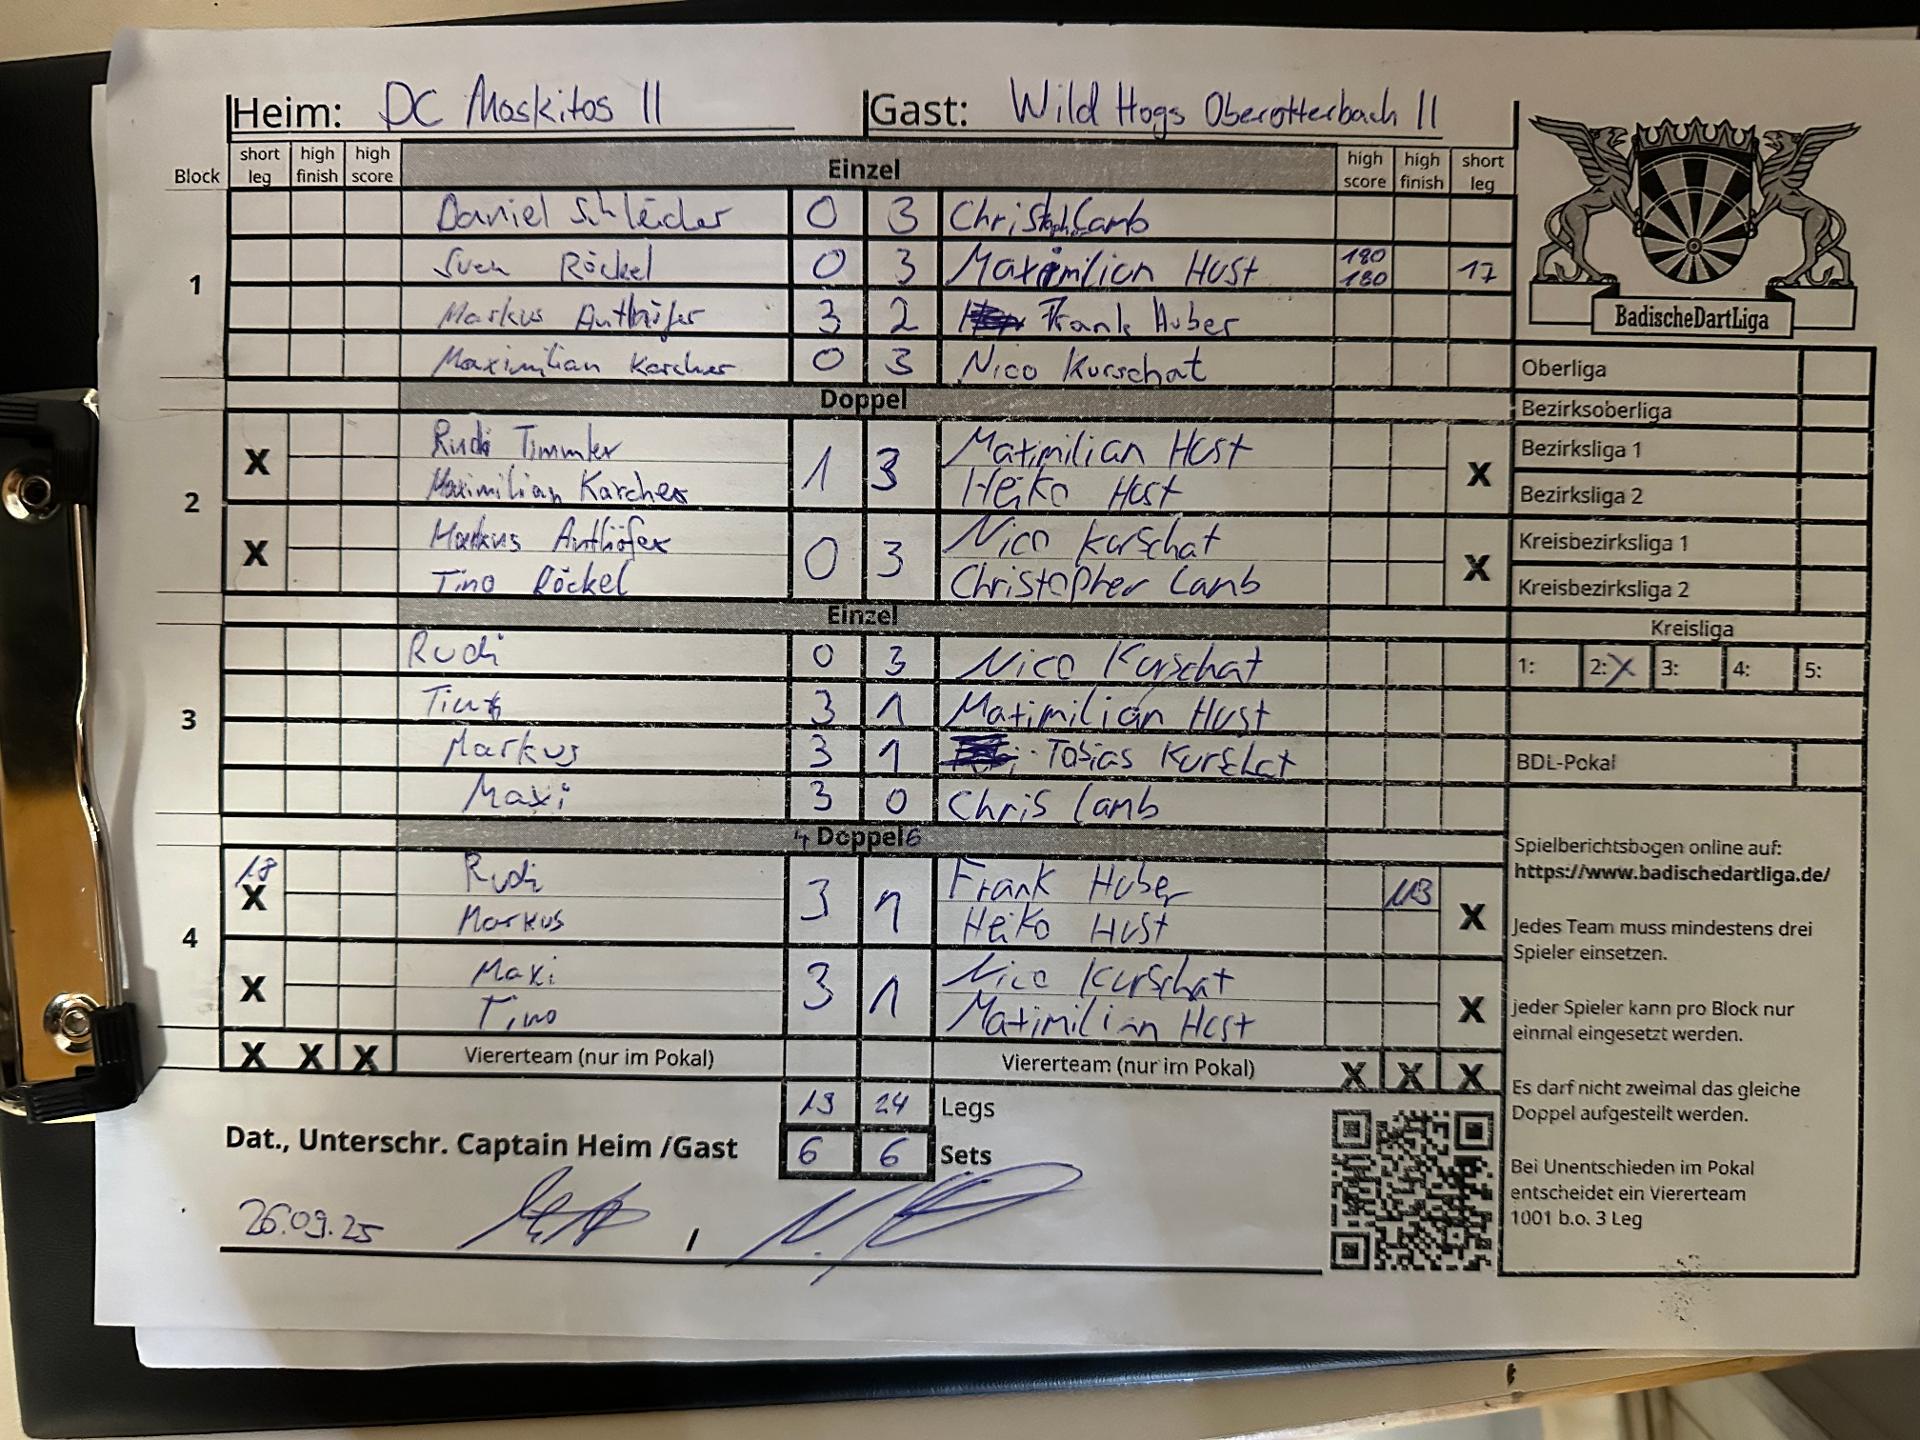 Heim: DC Moskitos II Gast: Wild Hogs Oberotterbach II
Block short leg high finish high score Einzel high score high finish short leg
1
Daniel Schleicher 0 3 Christoph Lamb
Sven Röckel 0 3 Maximilian Hust 180 180 17
Markus Anthöfer 3 2 Frank Huber
Maximilian Karcher 0 3 Nico Kurschat
Doppel
2
X Rudi Timmler 1 3 Maximilian Hust X
Maximilian Karcher Heiko Hust
X Markus Anthöfer 0 3 Nico Kurschat X
Tino Röckel Christopher Lamb
Einzel
3
Rudi 0 3 Nico Kurschat
Tino 3 1 Maximilian Hust
Markus 3 1 Tobias Kurschat
Maxi 3 0 Chris Lamb
4 Doppel 6
4
18 X Rudi 3 1 Frank Huber 113 X
Markus Heiko Hust
X Maxi 3 1 Nico Kurschat X
Tino Maximilian Hust
X X X Viererteam (nur im Pokal) Viererteam (nur im Pokal) X X X
19 24 Legs
6 6 Sets
Dat., Unterschr. Captain Heim /Gast
26.09.25 /
BadischeDartLiga
Oberliga
Bezirksoberliga
Bezirksliga 1
Bezirksliga 2
Kreisbezirksliga 1
Kreisbezirksliga 2
Kreisliga
1: 2: X 3: 4: 5:
BDL-Pokal
Spielberichtsbogen online auf:
https://www.badischedartliga.de/
Jedes Team muss mindestens drei
Spieler einsetzen.
jeder Spieler kann pro Block nur
einmal eingesetzt werden.
Es darf nicht zweimal das gleiche
Doppel aufgestellt werden.
Bei Unentschieden im Pokal
entscheidet ein Viererteam
1001 b.o. 3 Leg